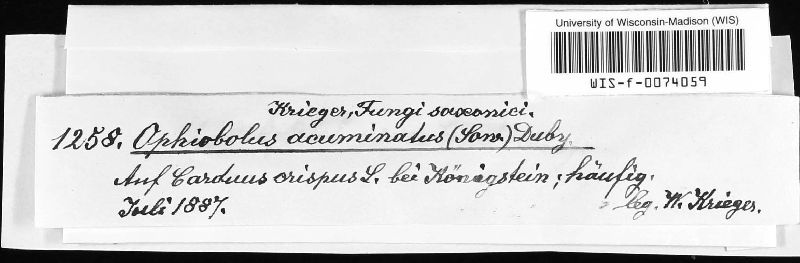 University of Wisconsin-Madison (WIS)
WIS-f-0074059
Krieger, Fungi saxonici.
1258. Ophiobolus acuminatus (Sow.) Duby.
Auf Carduus crispus L. bei Königstein; häufig.
Juli 1887. leg. W. Krieger.